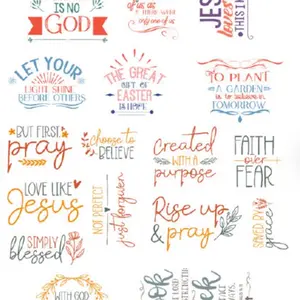 IS NO
GOD
of us as
JESUS
loves
THIS I
LET YOUR
LIGHT SHINE
BEFORE OTHERS
THE GREAT
GIFT OF
EASTER
IS HOPE
TO PLANT
A GARDEN
IS TO believe IN
TOMORROW
BUT FIRST,
pray
choose to
BELIEVE
CREATED
WITH A
purpose
FAITH
over
FEAR
LOVE LIKE
Jesus
NOT PERFECT
just forgiven
Rise up
& pray
SAVED BY
grace
Simply
blessed
WITH GOD